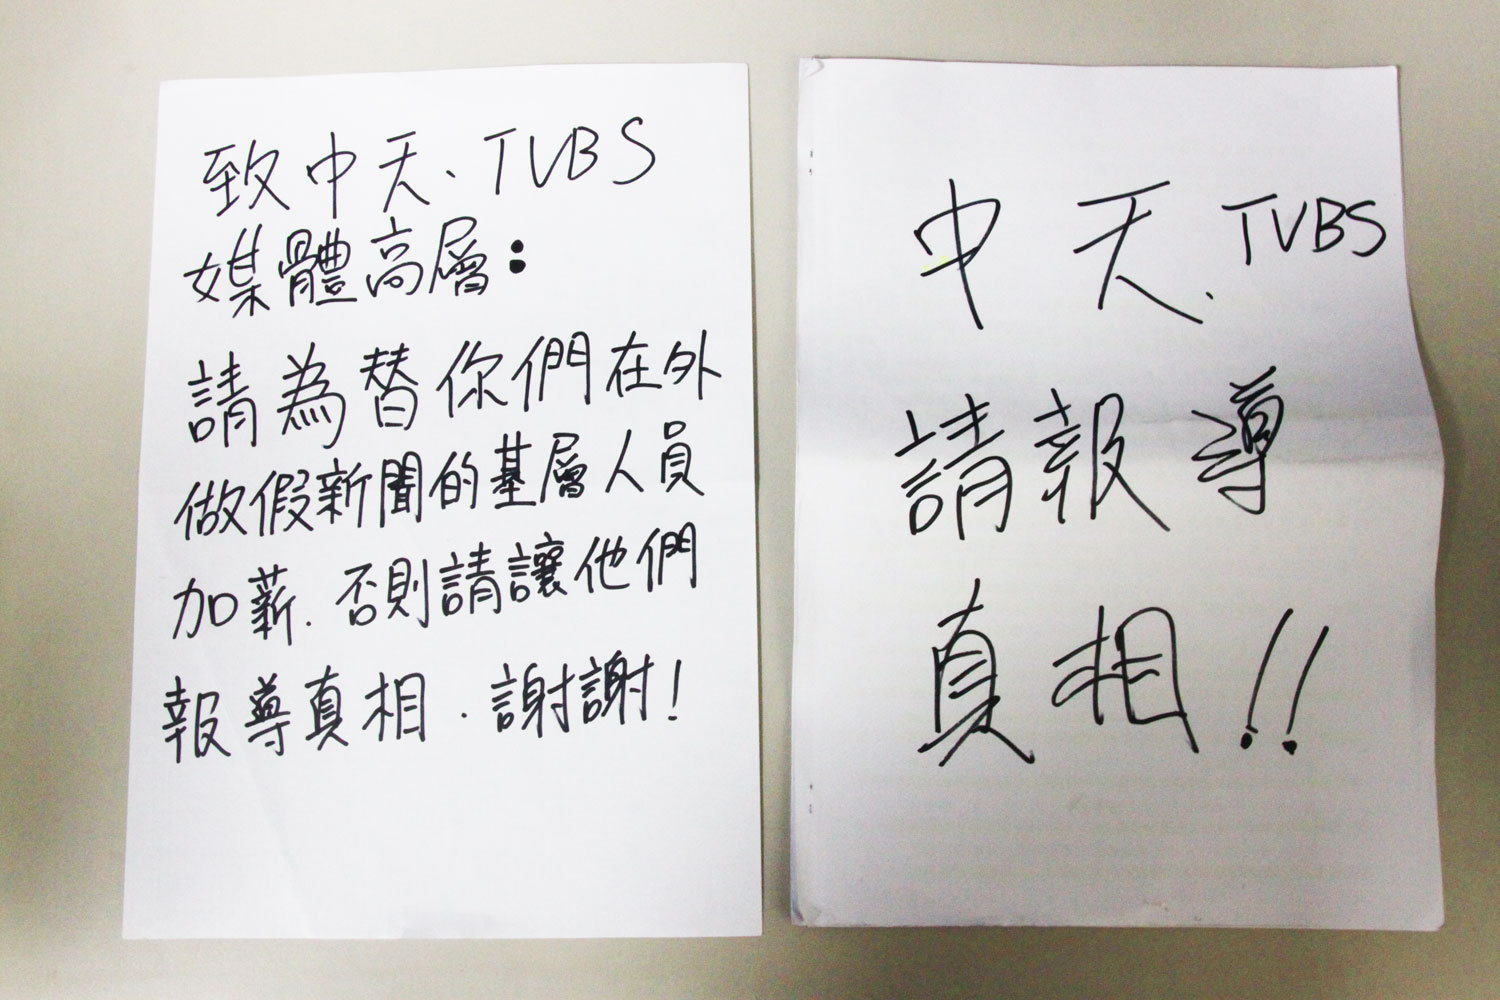 致中天、TVBS
媒體高層：
請為替你們在外
做假新聞的基層人員
加薪、否則請讓他們
報導真相．謝謝！
中天、TVBS
請報導
真相！！